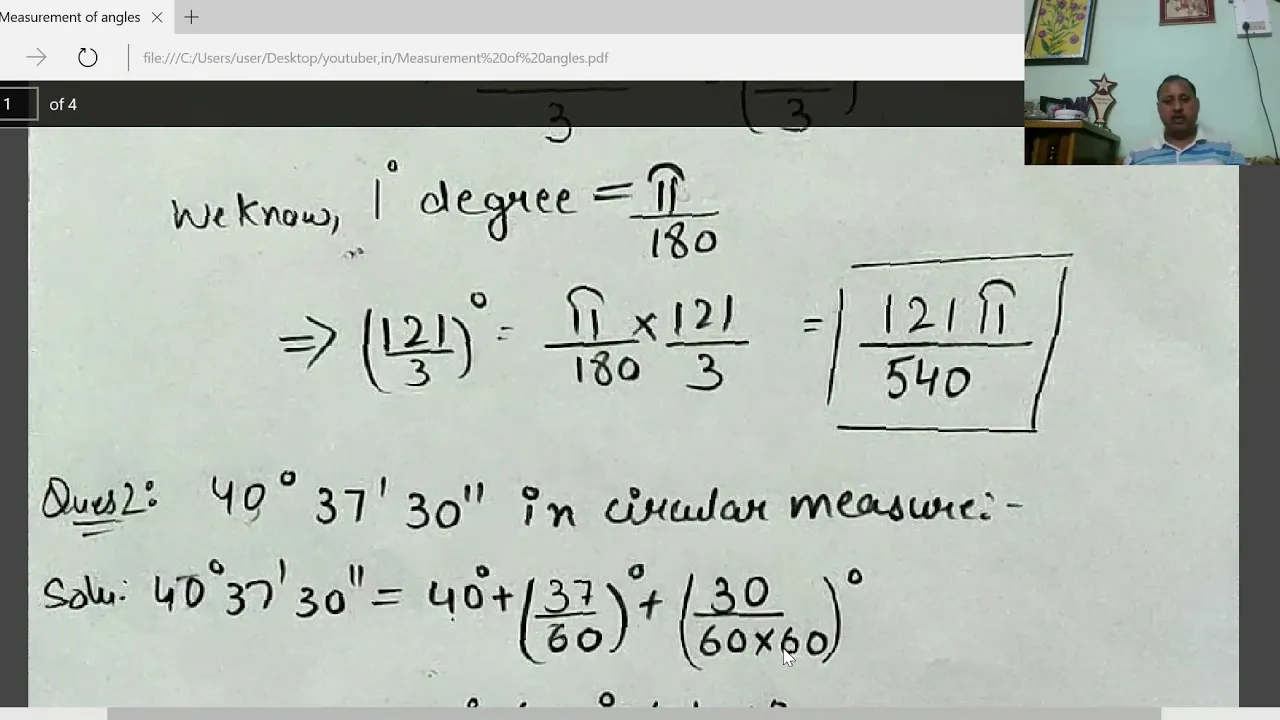 Measurement of angles
file:///C:/Users/user/Desktop/youtube,in/Measurement%20of%20angles.pdf
1 of 4
3 (/3)
We know, 1° degree = π/180
⇒ (121/3)° = π/180 × 121/3 = 121π/540
Ques2: 40° 37' 30" in circular measure:-
Soln: 40° 37' 30" = 40° + (37/60)° + (30/60×60)°